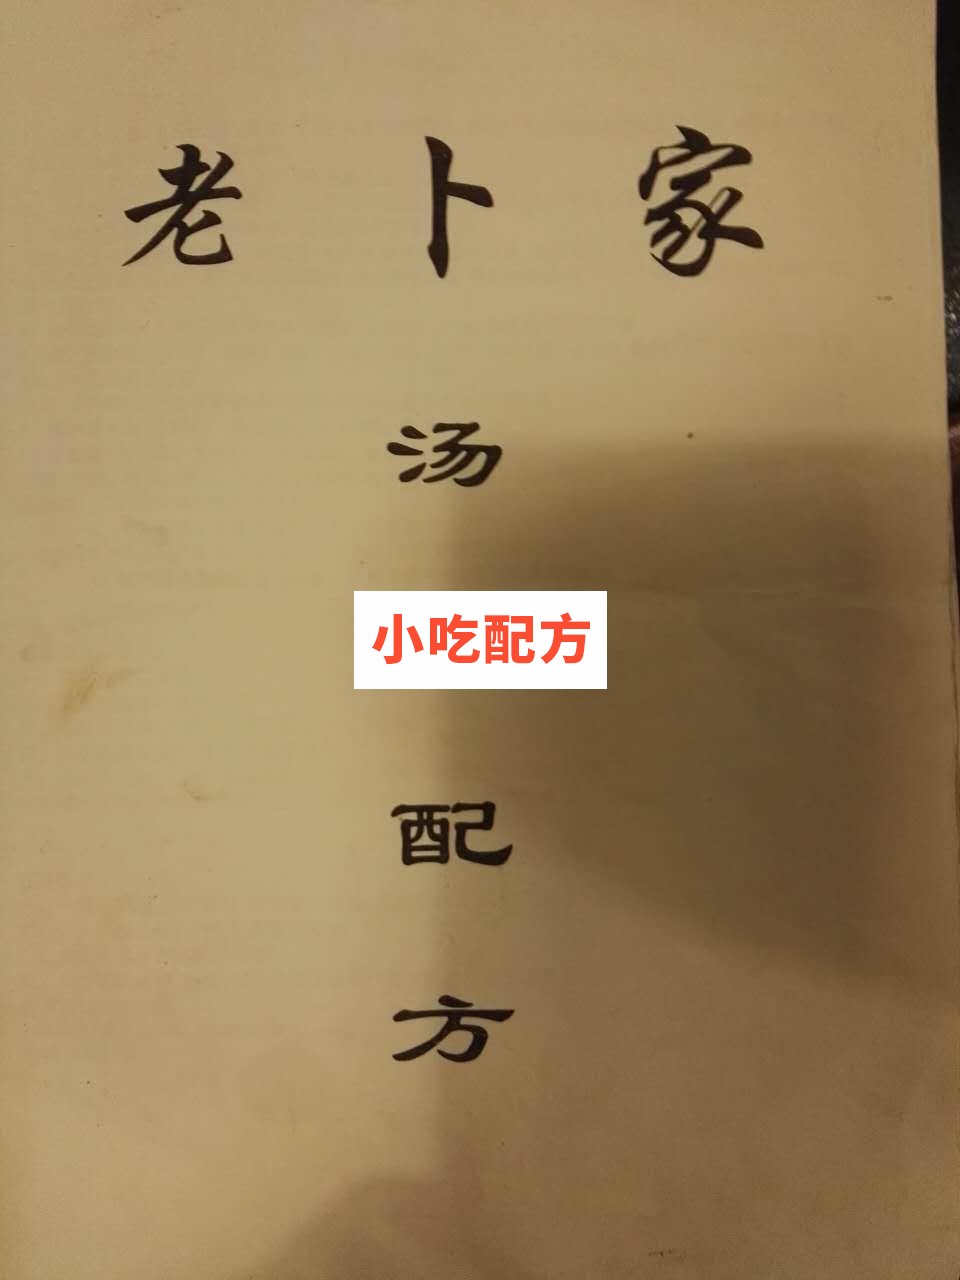 老卜家
汤
小吃配方
配
方